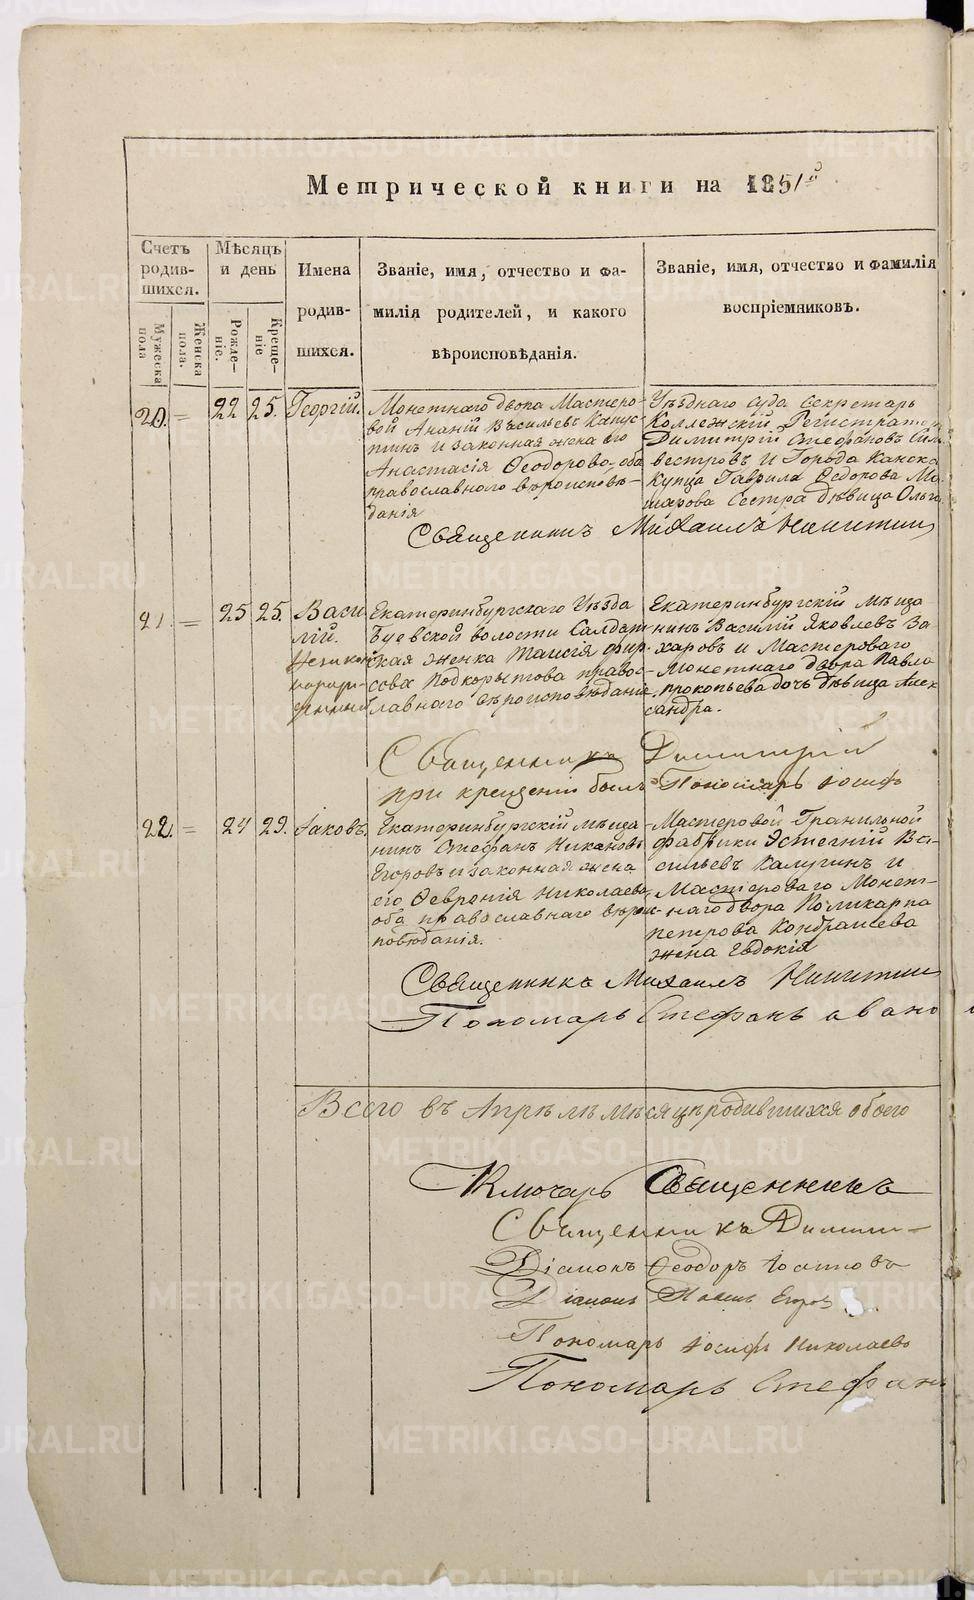 Метрической книги на 1851й
Счетъ родив-шихся.
Мѣсяцъ и день
Имена родив-шихся.
Званіе, имя, отчество и фа-
милія родителей, и какого
вѣроисповѣданія.
Званіе, имя, отчество и фамилія
воспріемниковъ.
Мужеска пола
Женска пола.
Рожде-ніе.
Креще-ніе
20. = 22 25. Георгій.
Монетнаго двора Мастеро-
вой Ананій Васильевъ Капус-
тинъ и законная жена его
Анастасія Ѳеодорова, оба
православнаго вѣроисповѣ-
данія
Уѣзднаго суда Секретарь
Коллежскій Регистраторъ
Димитрій Стефановъ Сил
вестровъ и Города Канска
Купца Гаврила Ѳедорова
сестра дѣвица Ольга
Священникъ Михаилъ Никитин
21. = 25 25. Васи
лій.
Незакон
норож-
денный
Екатеринбургскаго Уѣзда
Буевской волости Салдат
ская женка Таисія Фир
сова Подкорытова правос-
лавнаго вѣроисповѣданія
Екатеринбургскій мѣща
нинъ Василій Яковлевъ За
харовъ и Мастероваго
Монетнаго двора Павла
Прокопьева дочь дѣвица Алек
сандра.
Священникъ Димитрій
при крещеніи былъ Пономарь Іосифъ
22. = 24 29. Іаковъ.
Екатеринбургскій мѣща
нинъ Стефанъ Никановъ
Егоровъ и законная жена
его Февронія Николаева
оба православнаго вѣрои-
повѣданія.
Мастеровой Гранильной
фабрики Евстегній Ва-
сильевъ Калугинъ и
Мастероваго Монет-
наго двора Поликарпа
Петрова Кондрашева
жена Евдокія
Священникъ Михаилъ Никитин
Пономарь Стефанъ Ивано
Всего въ Апрѣлѣ мѣсяцѣ родившихся обоего
Ключарь Священникъ
Священникъ Димит-
Діаконъ Ѳеодоръ Іоанновъ
Діаконъ Павелъ Егоров
Пономарь Іосифъ Николаевъ
Пономарь Стефанъ
METRIKI.GASO-URAL.RU